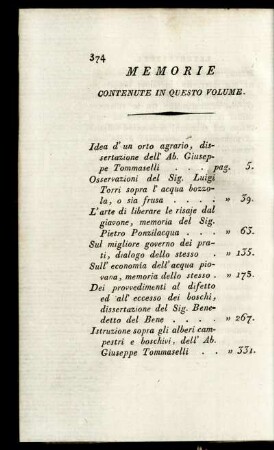 374
MEMORIE
CONTENUTE IN QUESTO VOLUME.
Idea d'un orto agrario, dis-
sertazione dell' Ab. Giusep-
pe Tommaselli . . . . pag. 5.
Osservazioni del Sig. Luigi
Torri sopra l' acqua bozzo-
la, o sia frusa . . . . . » 39.
L'arte di liberare le risaje dal
giavone, memoria del Sig.
Pietro Ponzilacqua . . . » 63.
Sul migliore governo dei pra-
ti, dialogo dello stesso . » 135.
Sull' economia dell' acqua pio-
vana, memoria dello stesso . » 173.
Dei provvedimenti al difetto
ed all' eccesso dei boschi,
dissertazione del Sig. Bene-
detto del Bene . . . . » 267.
Istruzione sopra gli alberi cam-
pestri e boschivi, dell' Ab.
Giuseppe Tommaselli . . » 331.